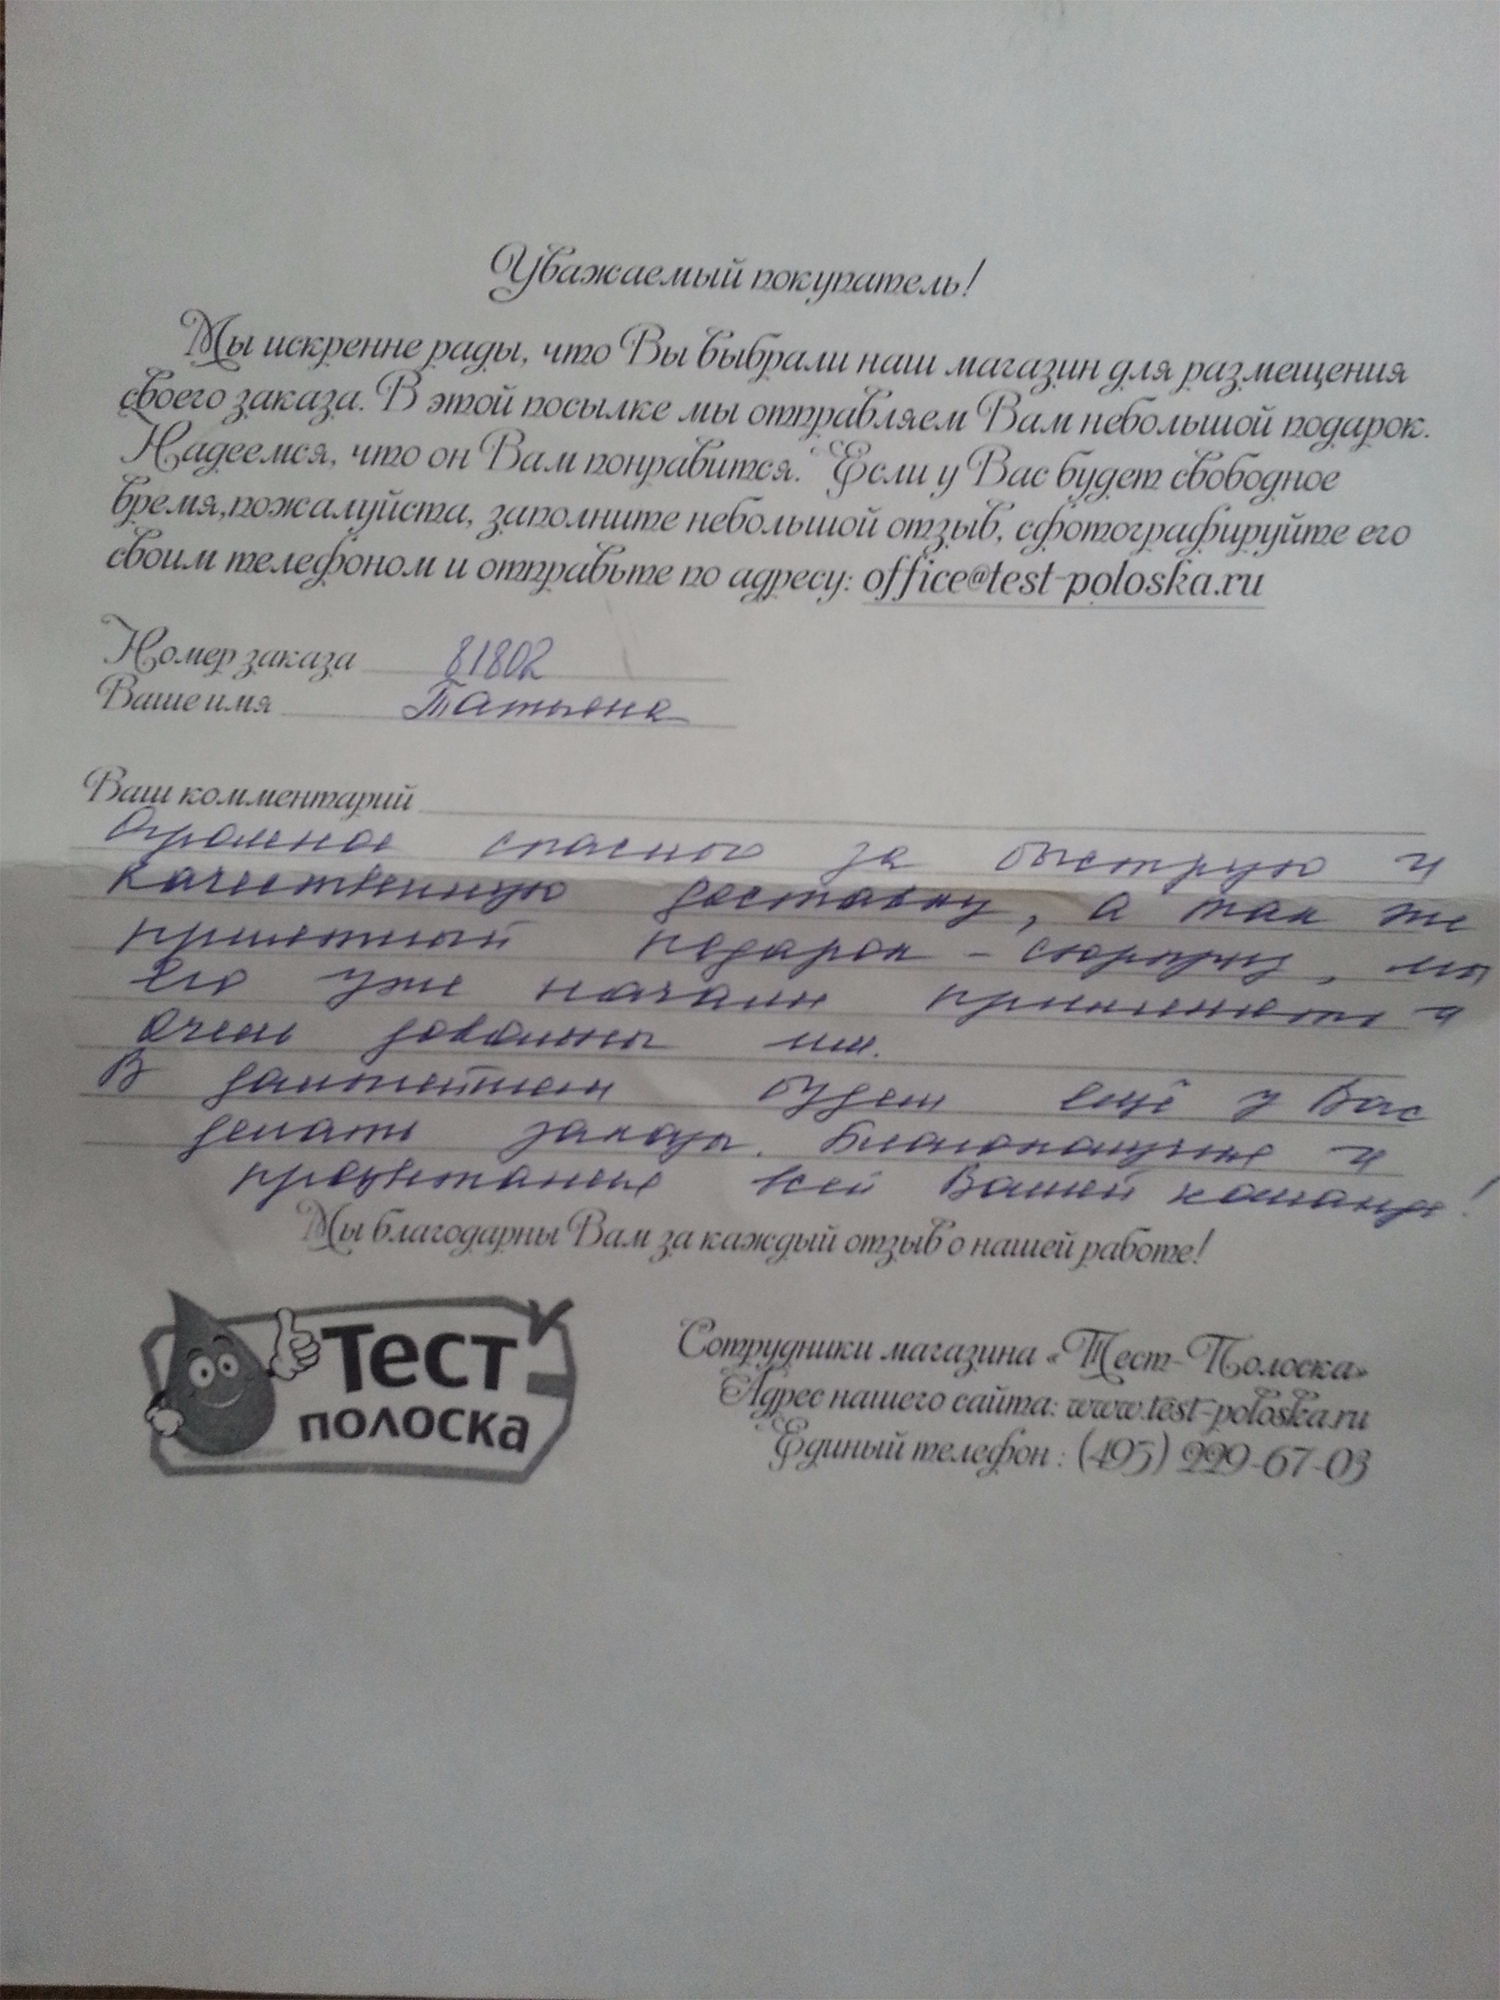 Уважаемый покупатель!
Мы искренне рады, что Вы выбрали наш магазин для размещения
своего заказа. В этой посылке мы отправляем Вам небольшой подарок.
Надеемся, что он Вам понравится. Если у Вас будет свободное
время,пожалуйста, заполните небольшой отзыв, сфотографируйте его
своим телефоном и отправьте по адресу: office@test-poloska.ru
Номер заказа 81802
Ваше имя Татьяна
Ваш комментарий
Огромное спасибо за быструю и
качественную доставку, а так же
приятный подарок - сюрприз, мы
его уже начали применять и
очень довольны им.
В дальнейшем будем ещё у Вас
делать заказы. Благополучия и
процветания всей Вашей команде!
Мы благодарны Вам за каждый отзыв о нашей работе!
Тест
полоска
Сотрудники магазина «Тест-Полоска»
Адрес нашего сайта: www.test-poloska.ru
Единый телефон : (495) 229-67-03